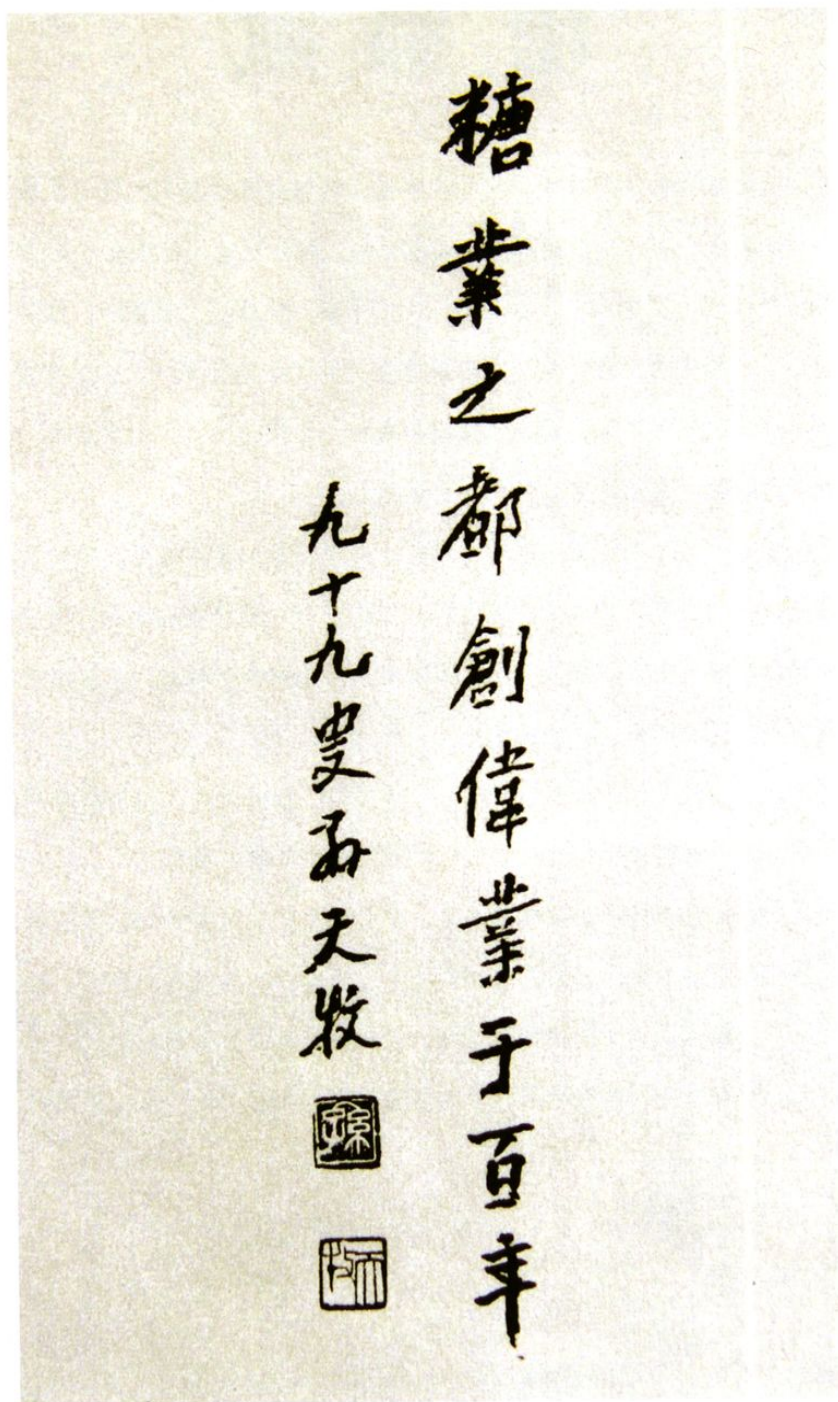 糖業之都創偉業于百年
九十九叟孫天牧